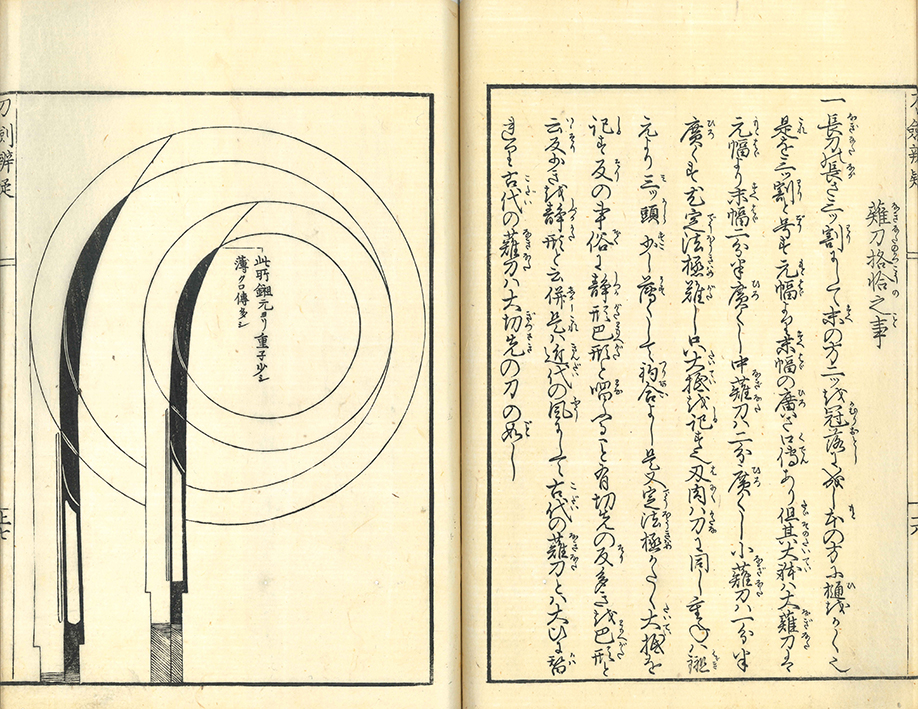 薙刀格恰之事
一長刀ハ長さ三ッ割にして末の方二ッを冠落に造し本の方に樋をかく也
是を三ッ割と号す元幅より末幅の廣さ口傳あり但其大抵ハ大薙刀は
元幅より末幅二分半廣くし中薙刀ハ二分廣くし小薙刀ハ一分半
廣くす尤定法極難し只大抵を記す也刃肉ハ刀に同し重ねハ鎺
元より三ッ頭少し薄くして釣合よし是又定法極かたく大抵を
記す反の事俗に静形巴形と唱ること有切先の反多きを巴形と
云反少きを静形と云併是ハ近代の風にして古代の薙刀とハ大ひに
古代の薙刀ハ大切先の刀の如し
此所鉏元ヨリ重子少シ
薄ク口傳多シ
刀劍辨疑
上七